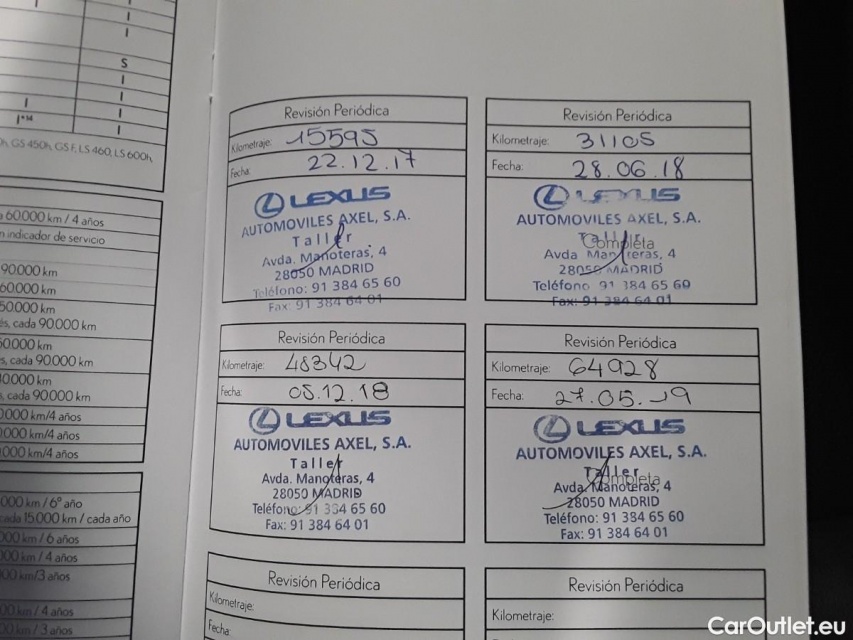 I
I
S
I
I
I
I
I*14
I
h, GS 450h, GS F, LS 460, LS 600h,
60.000 km / 4 años
n indicador de servicio
90.000 km
60.000 km
50.000 km
s, cada 90.000 km
50.000 km
s, cada 90.000 km
30.000 km
, cada 90.000 km
0.000 km/4 años
.000 km/4 años
.000 km/4 años
000 km / 6º año
cada 15.000 km / cada año
000 km / 6 años
000 km / 4 años
00 km/3 años
00 km / 4 años
00 km / 3 años
Revisión Periódica
Kilometraje: 15595
Fecha: 22.12.17
LEXUS
AUTOMOVILES AXEL, S.A.
Taller
Avda. Manoteras, 4
28050 MADRID
Teléfono: 91 384 65 60
Fax: 91 384 64 01
Revisión Periódica
Kilometraje: 31105
Fecha: 28.06.18
LEXUS
AUTOMOVILES AXEL, S.A.
Taller
Completa
Avda Manoteras, 4
28050 MADRID
Teléfono: 91 384 65 60
Fax: 91 384 64 01
Revisión Periódica
Kilometraje: 48342
Fecha: 05.12.18
LEXUS
AUTOMOVILES AXEL, S.A.
Taller
Avda. Manoteras, 4
28050 MADRID
Teléfono: 91 384 65 60
Fax: 91 384 64 01
Revisión Periódica
Kilometraje: 64928
Fecha: 27.05.19
LEXUS
AUTOMOVILES AXEL, S.A.
Taller
Completa
Avda. Manoteras, 4
28050 MADRID
Teléfono: 91 384 65 60
Fax: 91 384 64 01
Revisión Periódica
Kilometraje:
Fecha:
Revisión Periódica
Kilometraje:
CarOutlet.eu